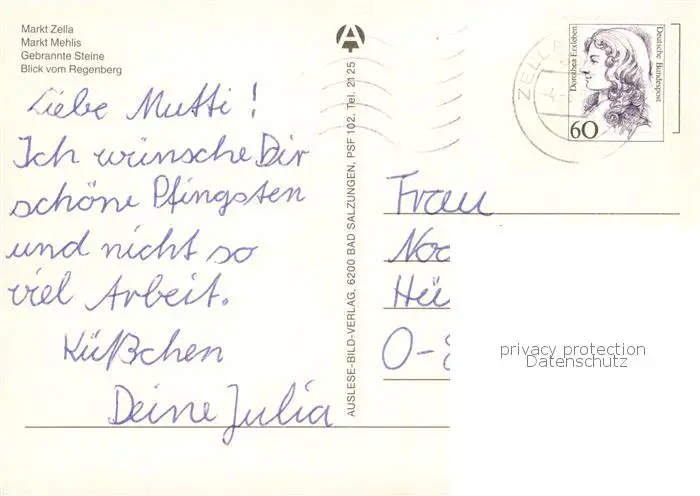 Markt Zella
Markt Mehlis
Gebrannte Steine
Blick vom Regenberg
Liebe Mutti!
Ich wünsche Dir
schöne Pfingsten
und nicht so
viel Arbeit.
Küßchen
Deine Julia
AUSLESE-BILD-VERLAG, 6200 BAD SALZUNGEN, PSF 102, Tel. 2125
ZELLA
Dorothea Erxleben
Deutsche Bundespost
60
Frau
O-
privacy protection
Datenschutz